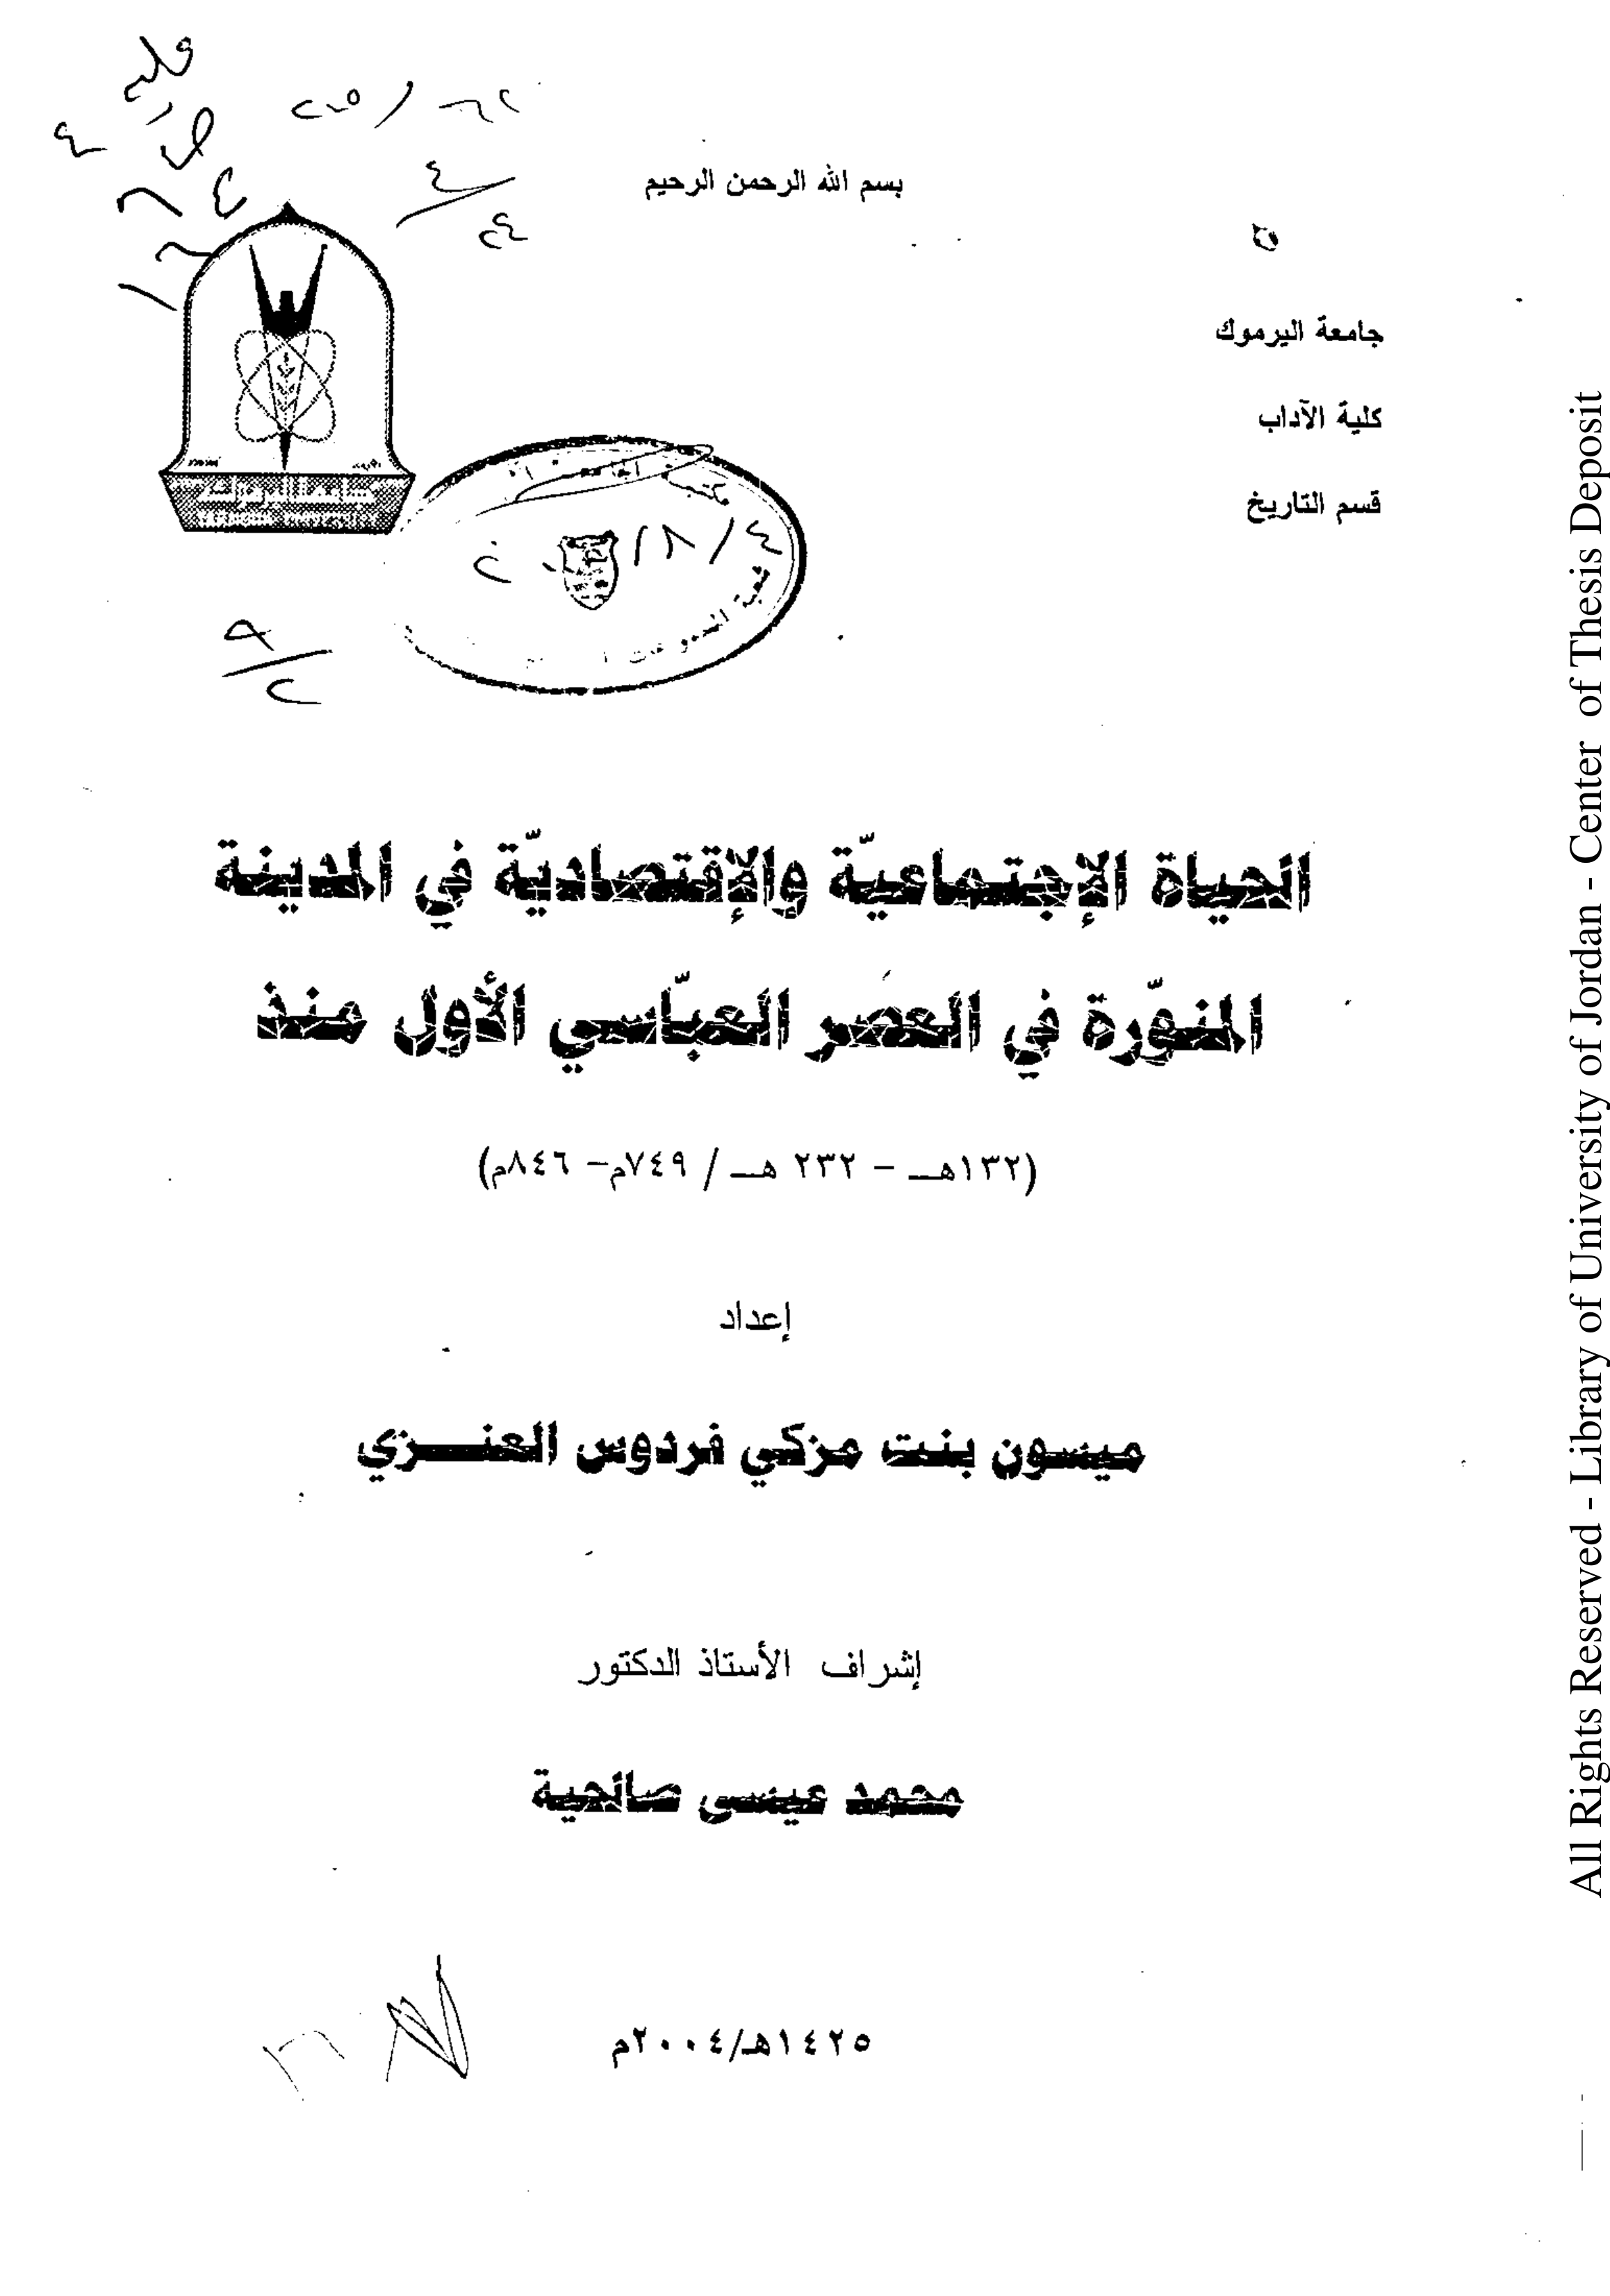 بسم الله الرحمن الرحيم
جامعة اليرموك
كلية الآداب
قسم التاريخ
الحياة الإجتماعيّة والإقتصاديّة في المدينة
المنوّرة في العصر العبّاسي الأول منذ
(١٣٢هـ – ٢٣٢ هـ / ٧٤٩م– ٨٤٦م)
إعداد
ميسون بنت مزكي فردوس العنـــزي
إشراف الأستاذ الدكتور
محمد عيسى صالحية
١٤٢٥هـ/٢٠٠٤م
All Rights Reserved - Library of University of Jordan - Center of Thesis Deposit